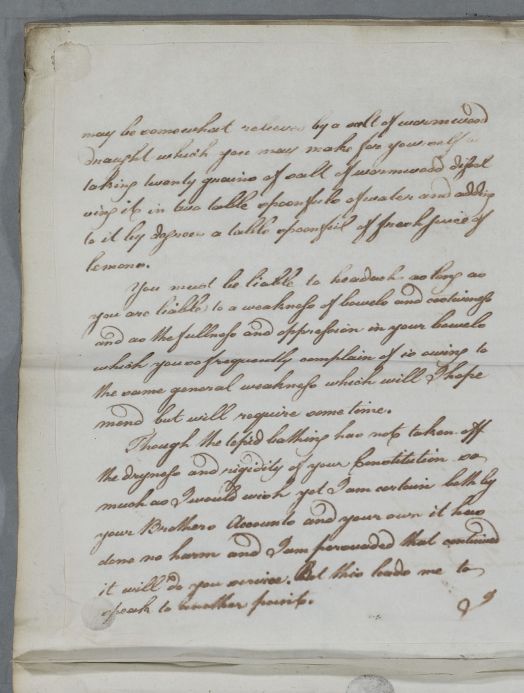 may be somewhat relieved by a salt of wormwood
draught which you may make for your self by
taking twenty grains of salt of wormwood dissol
ving it in two table spoonfuls of water and adding
to it by degrees a table spoonful of fresh juice of
lemons.
You must be liable to headach as long as
you are liable to a weakness of bowels and costiveness
and as the fullness and oppression in your bowels
which you so frequently complain of is owing to
the same general weakness which will I hope
mend but will require some time.
Though the tepid bathing has not taken off
the dryness and rigidity of your Constitution so
much as I would wish yet I am certain both by
your Brothers Accounts and your own it has
done no harm and I am persuaded that continued
it will do you service. But this leads me to
speak to another point.
I